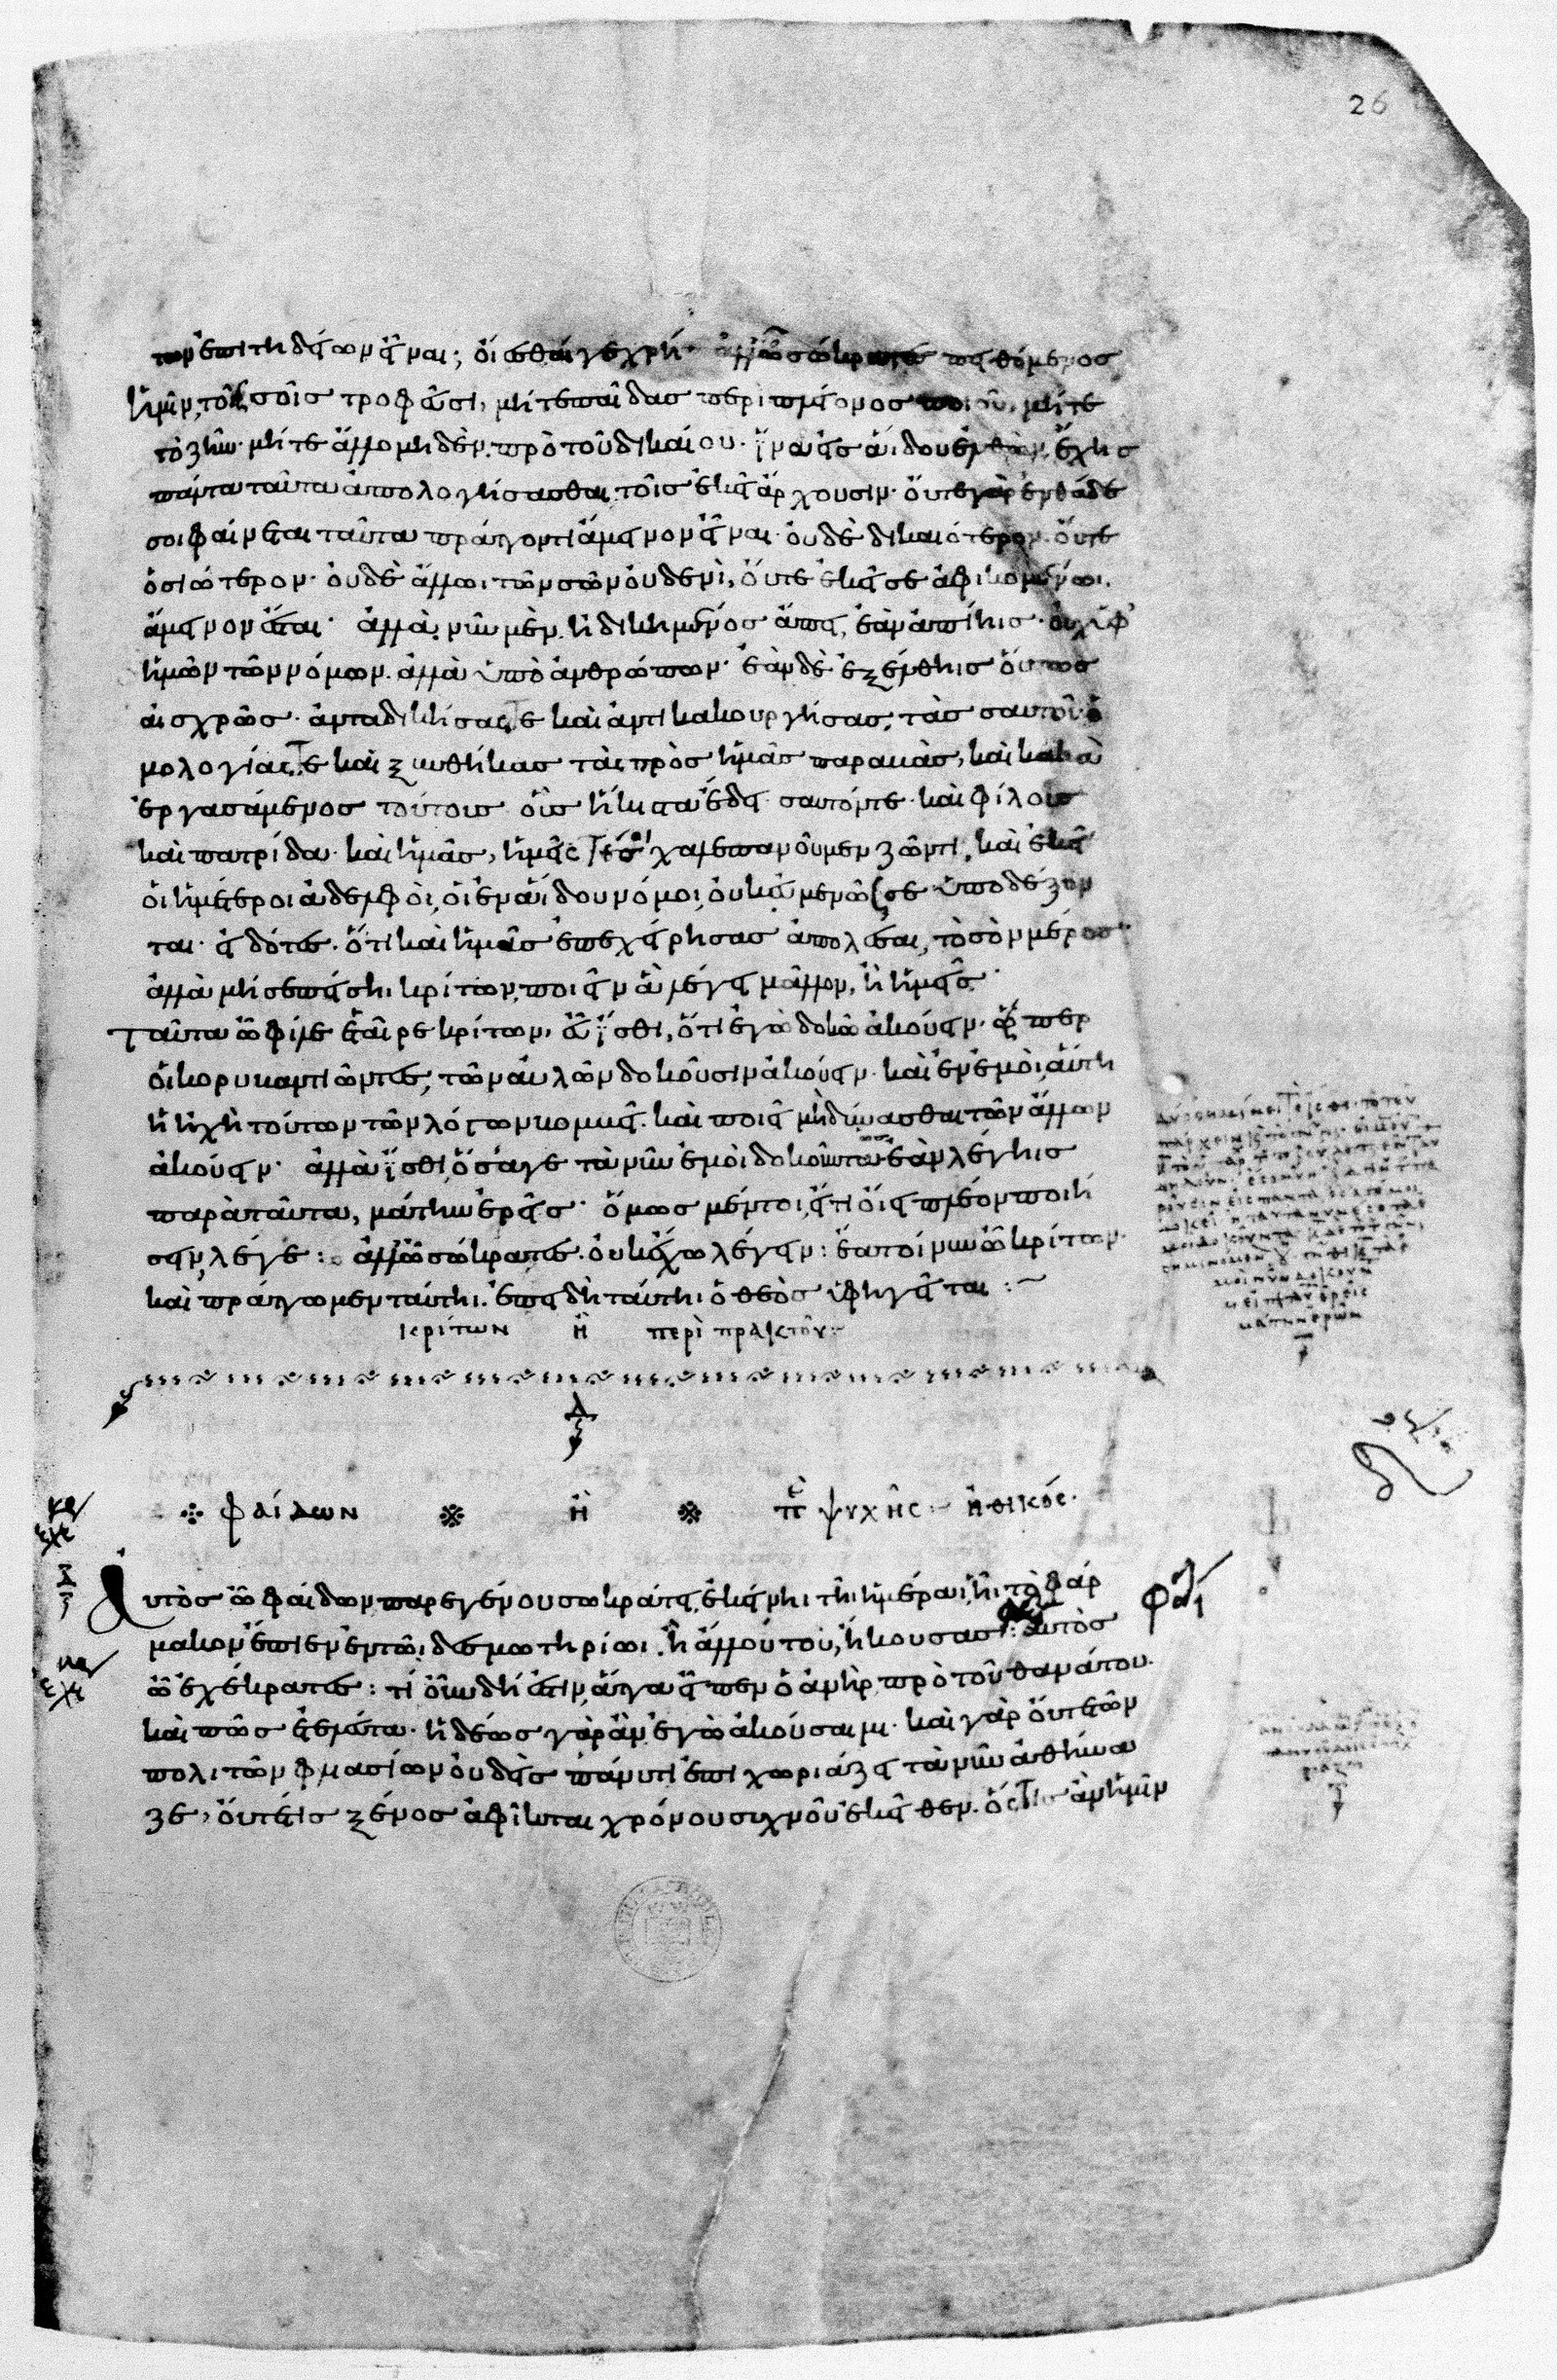 26
των ἐπιτηδείων εἶναι; οἴεσθαί γε χρή· ἀλλ' ὦ σώκρατες πειθόμενος
ἡμῖν τοῖς σοῖς τροφεῦσι, μήτε παῖδας περὶ πλείονος ποιοῦ, μήτε
τὸ ζῆν· μήτε ἄλλο μηδὲν πρὸ τοῦ δικαίου· ἵνα εἰς ἅιδου ἐλθὼν ἔχηις
πάντα ταῦτα ἀπολογήσασθαι τοῖς ἐκεῖ ἄρχουσιν· οὔτε γὰρ ἐνθάδε
σοι φαίνεται ταῦτα πράττοντι ἄμεινον εἶναι· οὐδὲ δικαιότερον· οὔτε
ὁσιώτερον· οὐδὲ ἄλλωι τῶν σῶν οὐδενί, οὔτε ἐκεῖσε ἀφικομένωι
ἄμεινον ἔσται· ἀλλὰ νῦν μὲν ἠδικημένος ἄπει, ἐὰν ἀπίηις· οὐχ ὑφ'
ἡμῶν τῶν νόμων ἀλλὰ ὑπὸ ἀνθρώπων· ἐὰν δὲ ἐξέλθηις οὕτως
αἰσχρῶς· ἀνταδικήσας τε καὶ ἀντικακουργήσας, τὰς σαυτοῦ ὁ
μολογίας τε καὶ ξυνθήκας τὰς πρὸς ἡμᾶς παραβάς, καὶ κακὰ
ἐργασάμενος τούτους οὓς ἥκιστα ἔδει· σαυτόν τε· καὶ φίλους
καὶ πατρίδα· καὶ ἡμᾶς, ἡμεῖς τέ σοι χαλεπανοῦμεν ζῶντι, καὶ ἐκεῖ
οἱ ἡμέτεροι ἀδελφοί, οἱ ἐν ἅιδου νόμοι, οὐκ εὐμενῶς σε ὑποδέξον
ται· εἰδότες· ὅτι καὶ ἡμᾶς ἐπεχείρησας ἀπολέσαι, τὸ σὸν μέρος·
ἀλλὰ μή σε πείσηι κρίτων ποιεῖν ἃ λέγει μᾶλλον, ἢ ἡμεῖς·
Ταῦτα ὦ φίλε ἑταῖρε κρίτων, εὖ ἴσθι, ὅτι ἐγὼ δοκῶ ἀκούειν· ὥσπερ
οἱ κορυβαντιῶντες, τῶν αὐλῶν δοκοῦσιν ἀκούειν· καὶ ἐν ἐμοὶ αὕτη
ἡ ἠχὴ τούτων τῶν λόγων βομβεῖ· καὶ ποιεῖ μὴ δύνασθαι τῶν ἄλλων
ἀκούειν· ἀλλὰ ἴσθι, ὅσα γε τὰ νῦν ἐμοὶ δοκοῦντα ἐὰν λέγηις
παρὰ ταῦτα, μάτην ἐρεῖς· ὅμως μέντοι, εἴ τι οἴει πλέον ποιή
σειν, λέγε: ἀλλ' ὦ σώκρατες· οὐκ ἔχω λέγειν: ἔα τοίνυν ὦ κρίτων·
καὶ πράττωμεν ταύτηι· ἐπειδὴ ταύτηι ὁ θεὸς ὑφηγεῖται :~
κρίτων ἢ περὶ πρακτοῦ:~
Δ
φαίδων ※ ἢ ※ πε ψυχῆς :~ ἠθικός·
Αὐτὸς ὦ φαίδων παρεγένου σωκράτει, ἐκείνηι τῆι ἡμέραι, ἧι τὸ φάρ
μακον ἔπιεν ἐν τῶι δεσμωτηρίωι. ἢ ἄλλου του, ἤκουσας: αὐτὸς
ὦ ἐχέκρατες: τί οὖν δή ἐστιν, ἅττα εἶπεν ὁ ἀνὴρ πρὸ τοῦ θανάτου.
καὶ πῶς ἐτελεύτα· ἡδέως γὰρ ἂν ἐγὼ ἀκούσαιμι· καὶ γὰρ οὔτε τῶν
πολιτῶν φλιασίων οὐδεὶς πάνυ τι ἐπιχωριάζει τὰ νῦν ἀθήνα
ζε, οὔτέ τις ξένος ἀφῖκται χρόνου συχνοῦ ἐκεῖθεν· ὅστις ἂν ἡμῖν